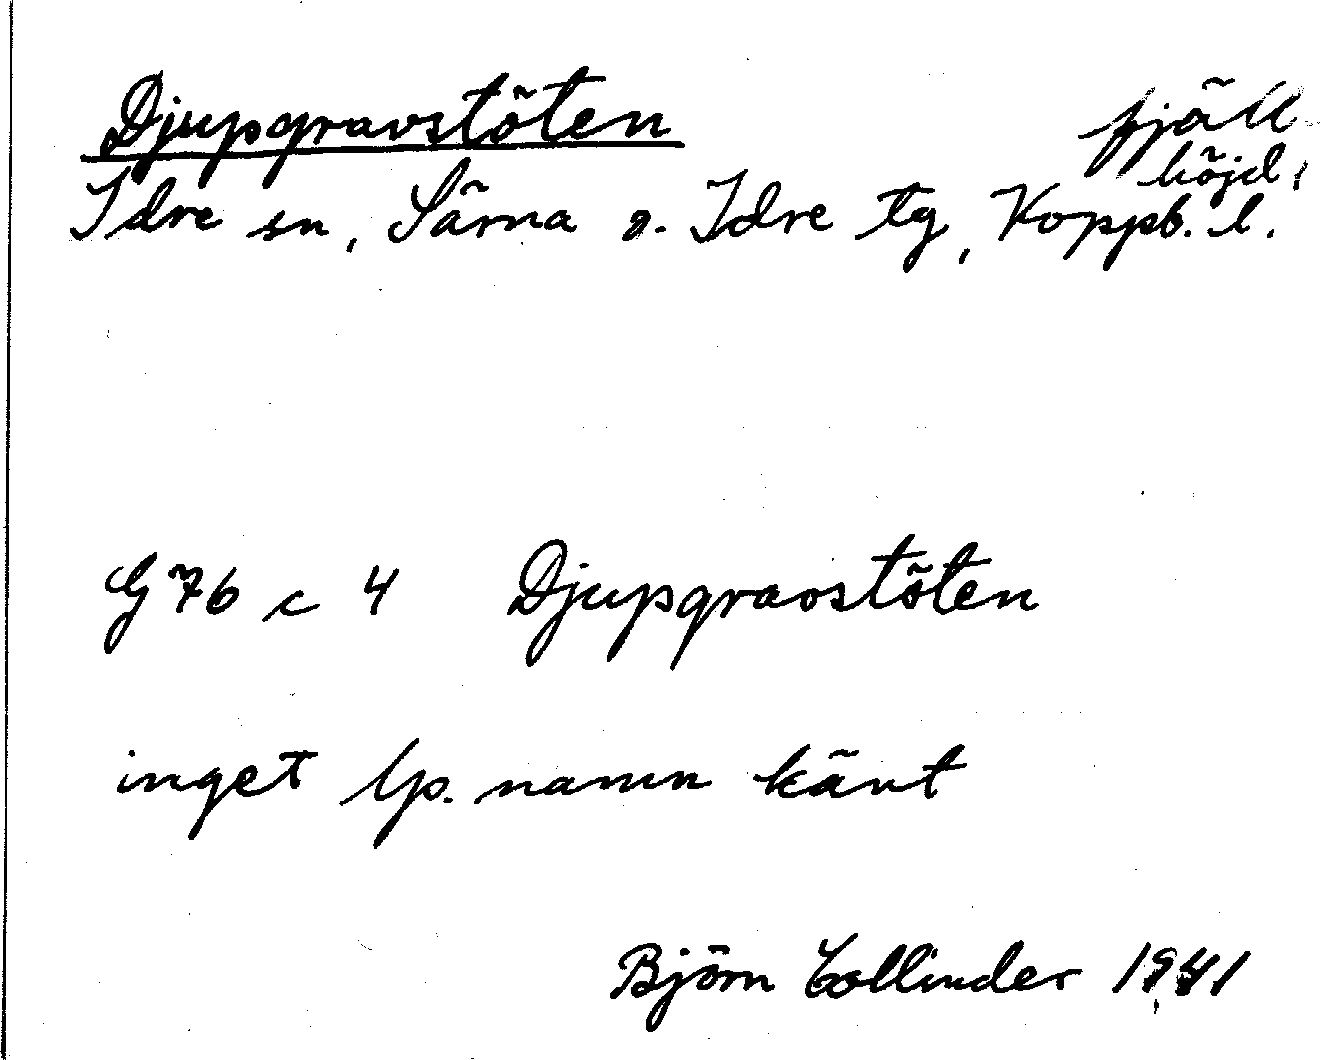 Djupgravstöten fjäll
höjd,
Idre sn, Särna o. Idre tg, Koppb. l.
G 76 c 4 Djupgravstöten
inget lp. namn känt
Björn Collinder 1941